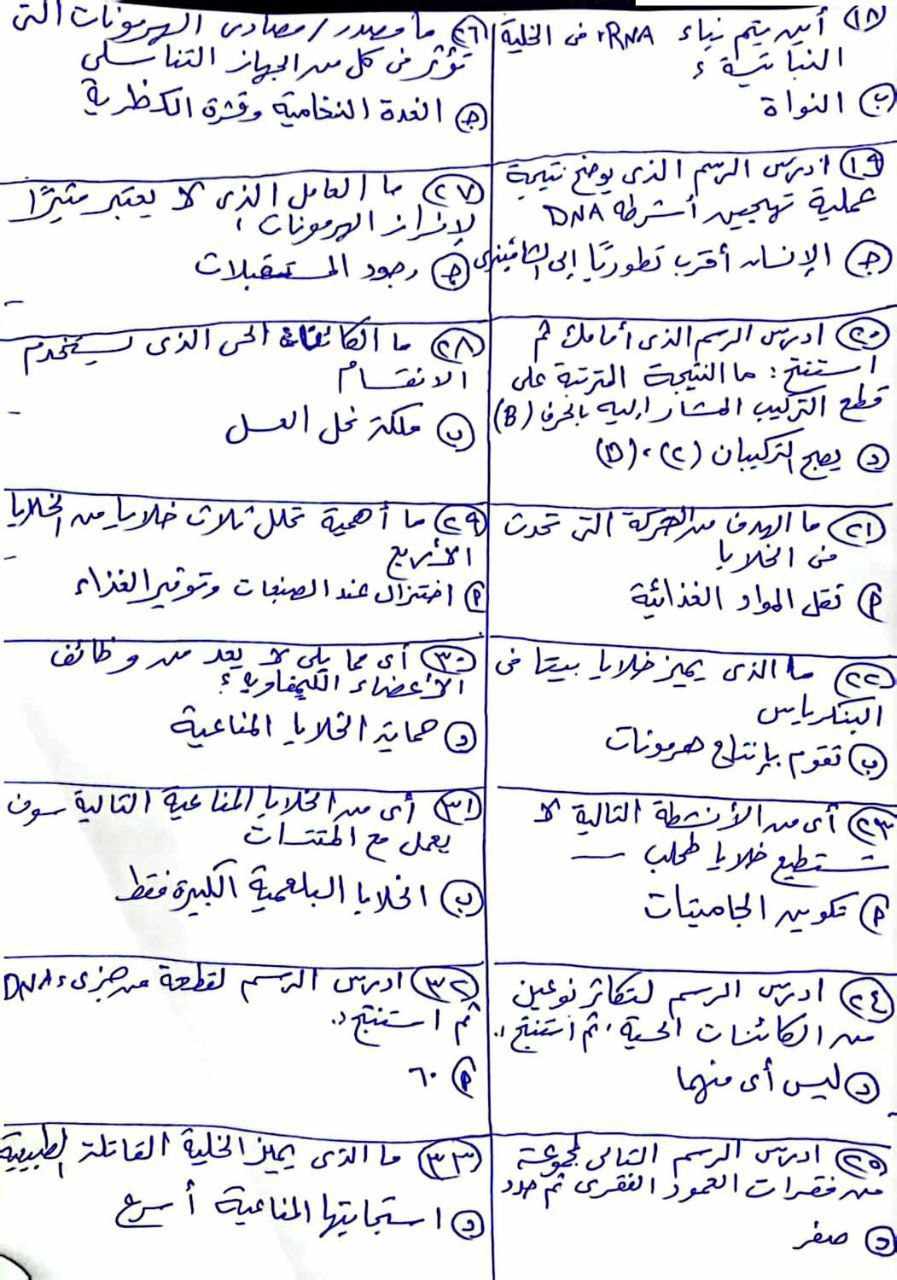 ١٨ أين يتم بناء rRNA فى الخلية
النباتية ؟
ب النواة
١٩ ادرس الرسم الذى يوضح نتيجة
عملية تهجين أشرطة DNA
ج الإنسان أقرب تطوريًا إلى الشامبنزى
٢٠ ادرس الرسم الذى أمامك ثم
استنتج : ما النتيجة المترتبة على
قطع التركيب المشار إليه بالحرف (B)
د يصبح التركيبان (C) ، (D)
٢١ ما الهدف من الحركة التى تحدث
فى الخلايا
P نقل المواد الغذائية
٢٢ ما الذى يميز خلايا بيتا فى
البنكرياس
ب تقوم بإنتاج هرمونات
٢٣ أى من الأنشطة التالية لا
تستطيع خلايا طحلب —
P تكوين الجاميتات
٢٤ ادرس الرسم لتكاثر نوعين
من الكائنات الحية ، ثم استنتج :.
د ليس أى منهما
٢٥ ادرس الرسم التالى لمجموعة
من فقرات العمود الفقرى ثم حدد
د صفر
٢٦ ما مصدر / مصادر الهرمونات التى
تؤثر فى كل من الجهاز التناسلى
ج الغدة النخامية وقشرة الكظرية
٢٧ ما العامل الذى لا يعتبر مثيرًا
لإفراز الهرمونات ؛
ج وجود المستقبلات
٢٨ ما الكائن الحى الذى يستخدم
الانقسام
ب ملكة نحل العسل
٢٩ ما أهمية تحلل ثلاث خلايا من الخلايا
الأربع
P اختزال عدد الصبغيات وتوفير الغذاء
٣٠ أى مما يلى لا يعد من وظائف
الأعضاء الليمفاوية ؟
د حماية الخلايا المناعية
٣١ أى من الخلايا المناعية التالية سوف
يعمل مع المتممات
ب الخلايا البلعمية الكبيرة فقط
٣٢ ادرس الرسم لقطعة من جزىء DNA
ثم استنتج :.
P ٦٠
٣٣ ما الذى يميز الخلية القاتلة الطبيعية
د استجابتها المناعية أسرع